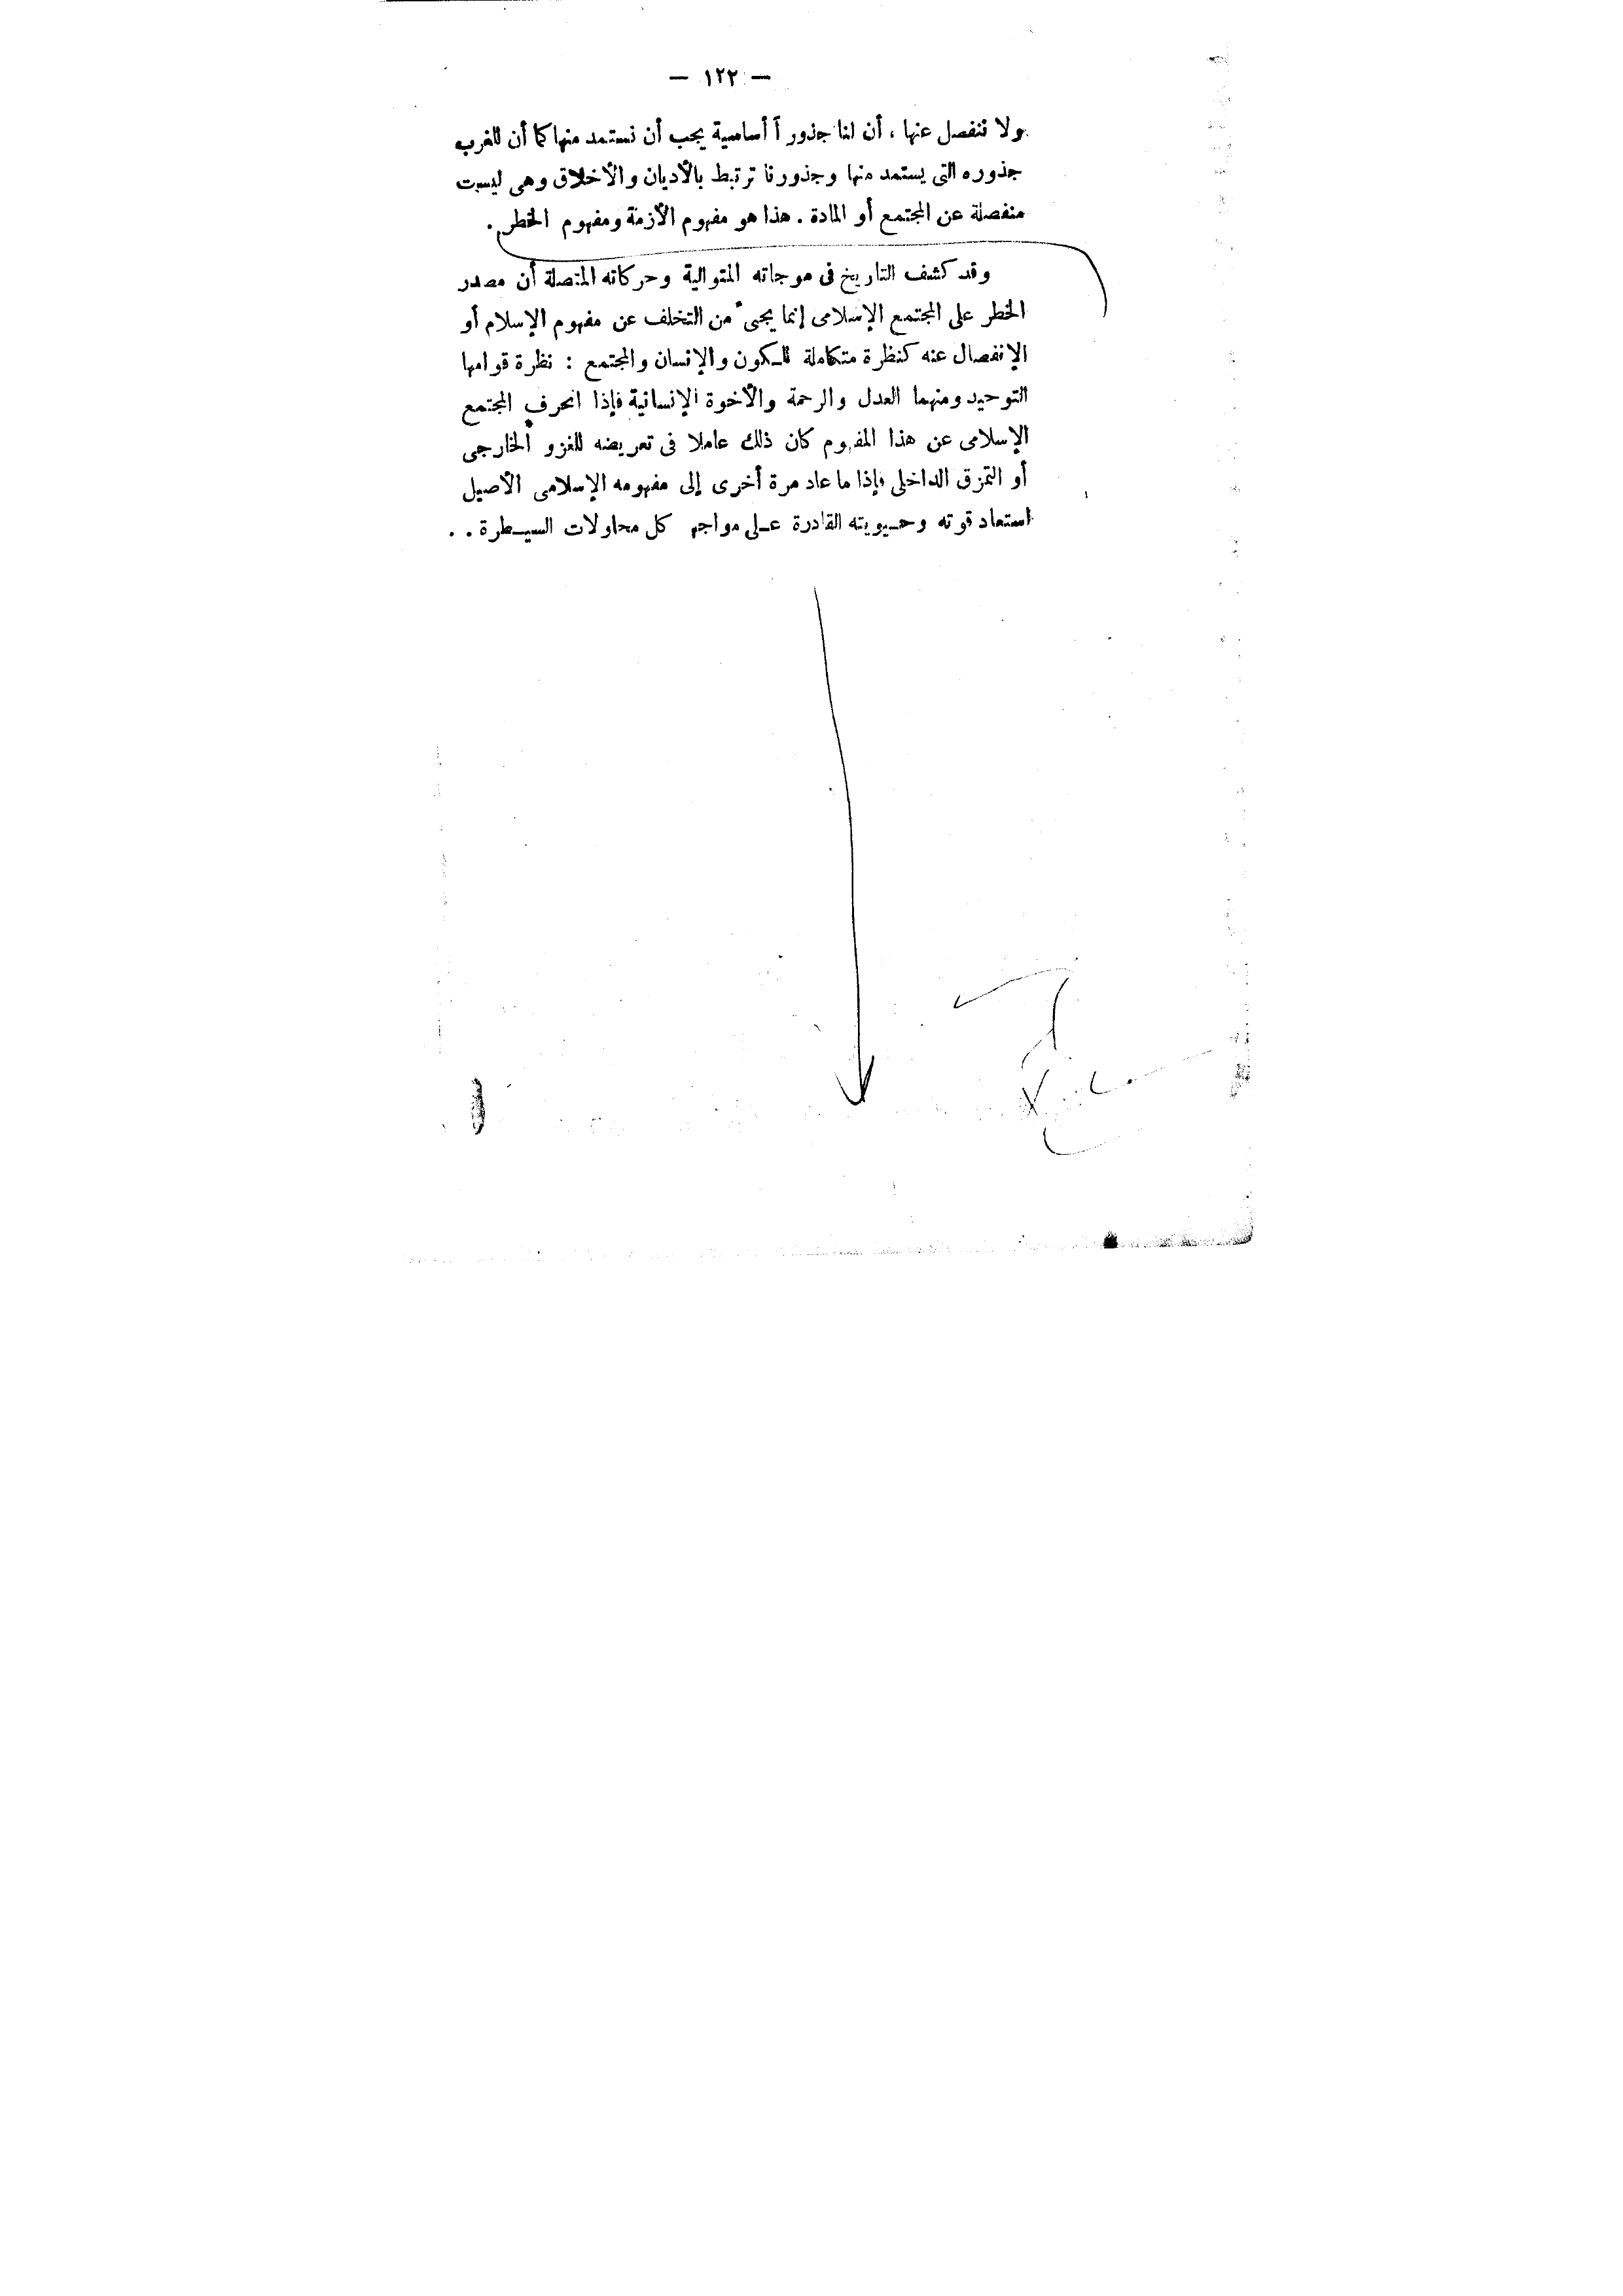 — ١٢٢ —
ولا تنفصل عنها ، أن لنا جذوراً أساسية يجب أن نستمد منها كما أن للغرب
جذوره التى يستمد منها وجذورنا ترتبط بالأديان والأخلاق وهى ليست
منفصلة عن المجتمع أو المادة . هذا هو مفهوم الأزمة ومفهوم الخطر .
وقد كشف التاريخ فى موجاته المتوالية وحركاته المتصلة أن مصدر
الخطر على المجتمع الإسلامى إنما يجىء من التخلف عن مفهوم الإسلام أو
الإنفصال عنه كنظرة متكاملة للكون والإنسان والمجتمع : نظرة قوامها
التوحيد ومنهما العدل والرحمة والأخوة الإنسانية فإذا انحرف المجتمع
الإسلامى عن هذا المفهوم كان ذلك عاملا فى تعريضه للغزو الخارجى
أو التمزق الداخلى فإذا ما عاد مرة أخرى إلى مفهومه الإسلامى الأصيل
استعاد قوته وحيويته القادرة على مواجهة كل محاولات السيطرة . .